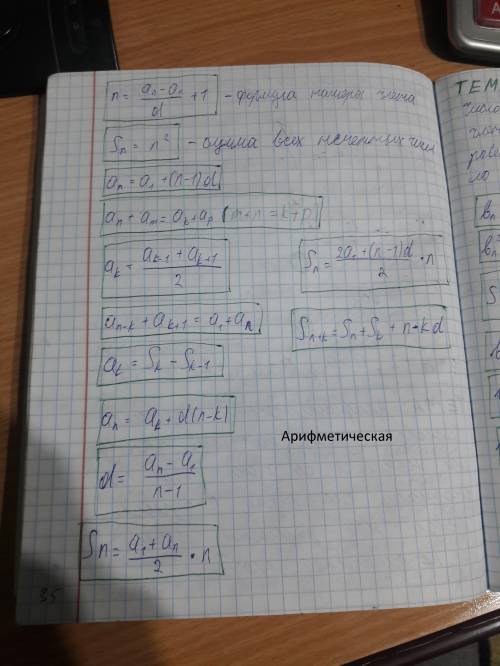 n = (aₙ - a₁)/d + 1 - формула номера члена
Sₙ = n² - сумма всех нечетных чисел
aₙ = a₁ + (n-1)d
aₙ + aₘ = aₖ + aₚ (m+n = k+p)
aₖ = (aₖ₋₁ + aₖ₊₁)/2
Sₙ = (2a₁ + (n-1)d)/2 · n
aₙ₋ₖ + aₖ₊₁ = a₁ + aₙ
Sₙ₊ₖ = Sₙ + Sₖ + n·kd
aₖ = Sₖ - Sₖ₋₁
aₙ = aₖ + d(n-k)
Арифметическая
d = (aₙ - a₁)/(n-1)
Sn = (a₁ + aₙ)/2 · n
35
ТЕМ
число
bₙ
bₙ
S